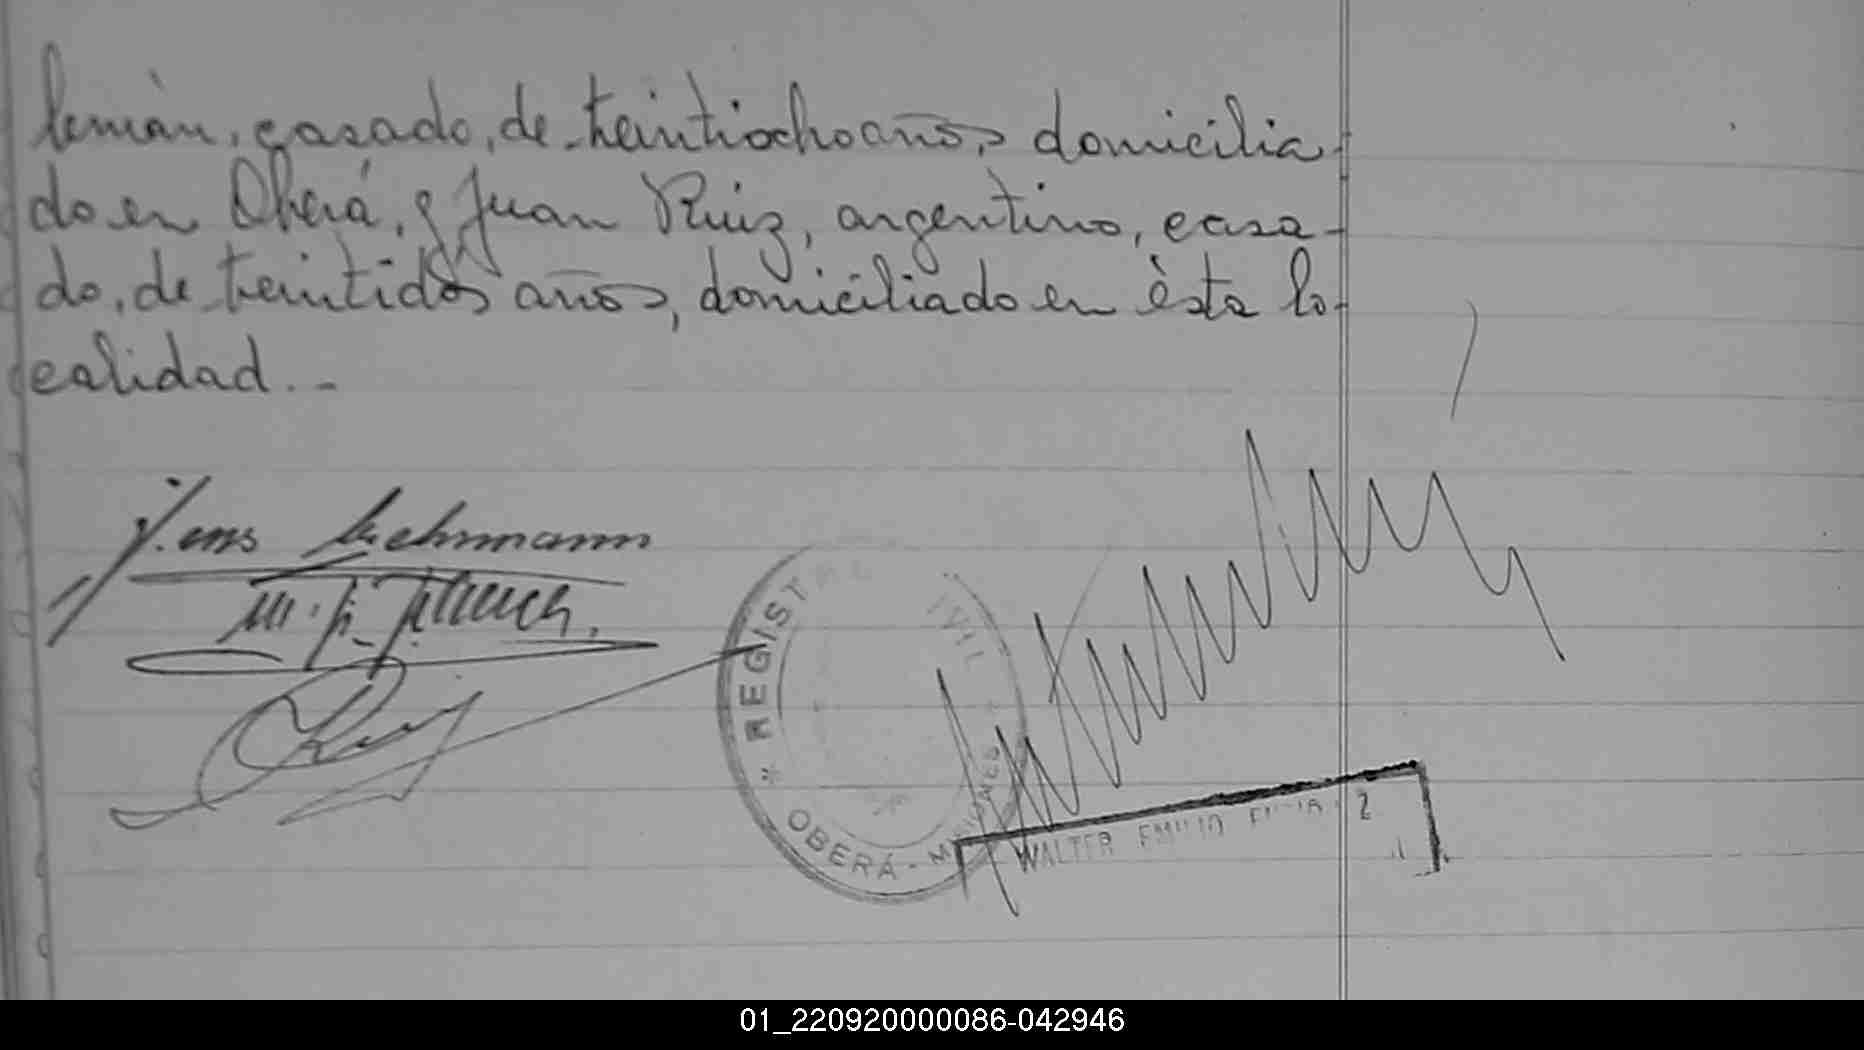 lemán, casado, de treintiocho años, domicilia-
do en Oberá, y Juan Ruiz, argentino, casa-
do, de treintidós años, domiciliado en ésta lo-
calidad.-
Jens Lehmann
REGISTR CIVIL
OBERÁ - MISIONES
WALTER EMILIO
01_220920000086-042946